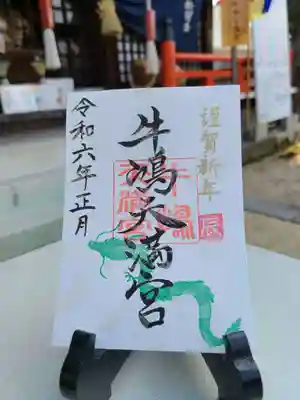 謹賀新年
辰
牛嶋天満宮
令和六年正月